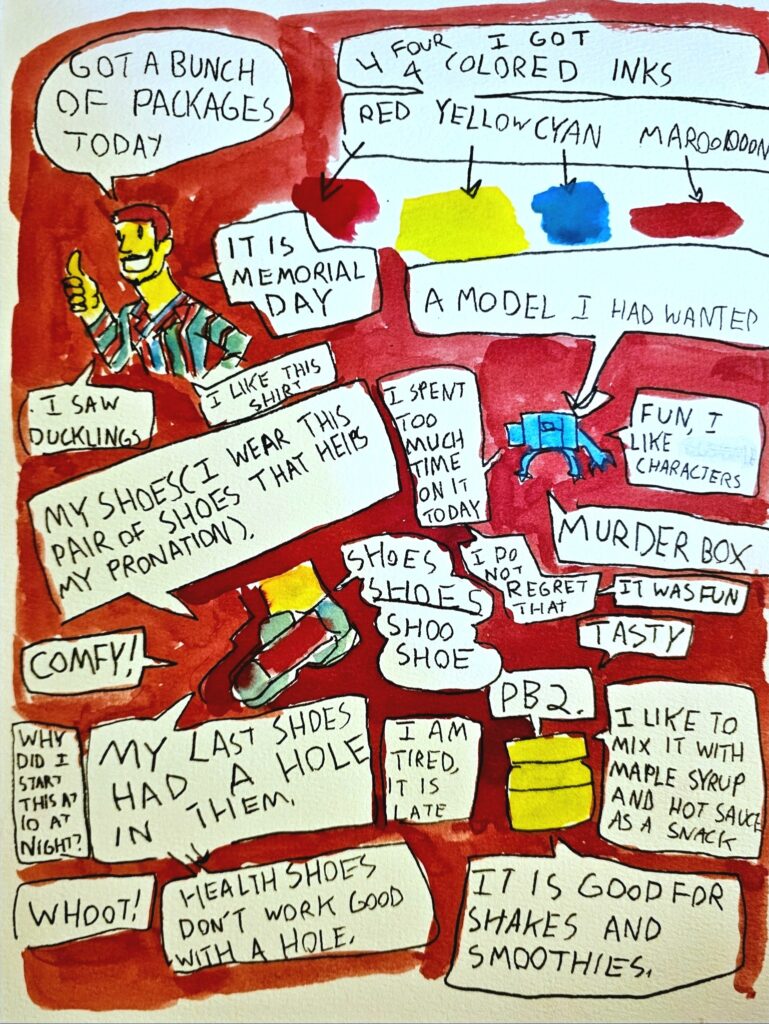 GOT A BUNCH
OF PACKAGES
TODAY
4 FOUR 4 I GOT
COLORED INKS
RED YELLOW CYAN MAROOOOON
IT IS
MEMORIAL
DAY
A MODEL I HAD WANTED
I SAW
DUCKLINGS
I LIKE THIS
SHIRT
I SPENT
TOO
MUCH
TIME
ON IT
TODAY
FUN, I
LIKE
CHARACTERS
MY SHOES(I WEAR THIS
PAIR OF SHOES THAT HELPS
MY PRONATION).
MURDER BOX
SHOES
SHOES
SHOO
SHOE
I DO
NOT
REGRET
THAT
IT WAS FUN
COMFY!
TASTY
PB2.
WHY
DID I
START
THIS AT
10 AT
NIGHT?
MY LAST SHOES
HAD A HOLE
IN THEM.
I AM
TIRED,
IT IS
LATE
I LIKE TO
MIX IT WITH
MAPLE SYRUP
AND HOT SAUCE
AS A SNACK
WHOOT!
HEALTH SHOES
DON'T WORK GOOD
WITH A HOLE.
IT IS GOOD FOR
SHAKES AND
SMOOTHIES.